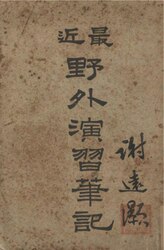 最近
野外演習筆記
謝遠灝